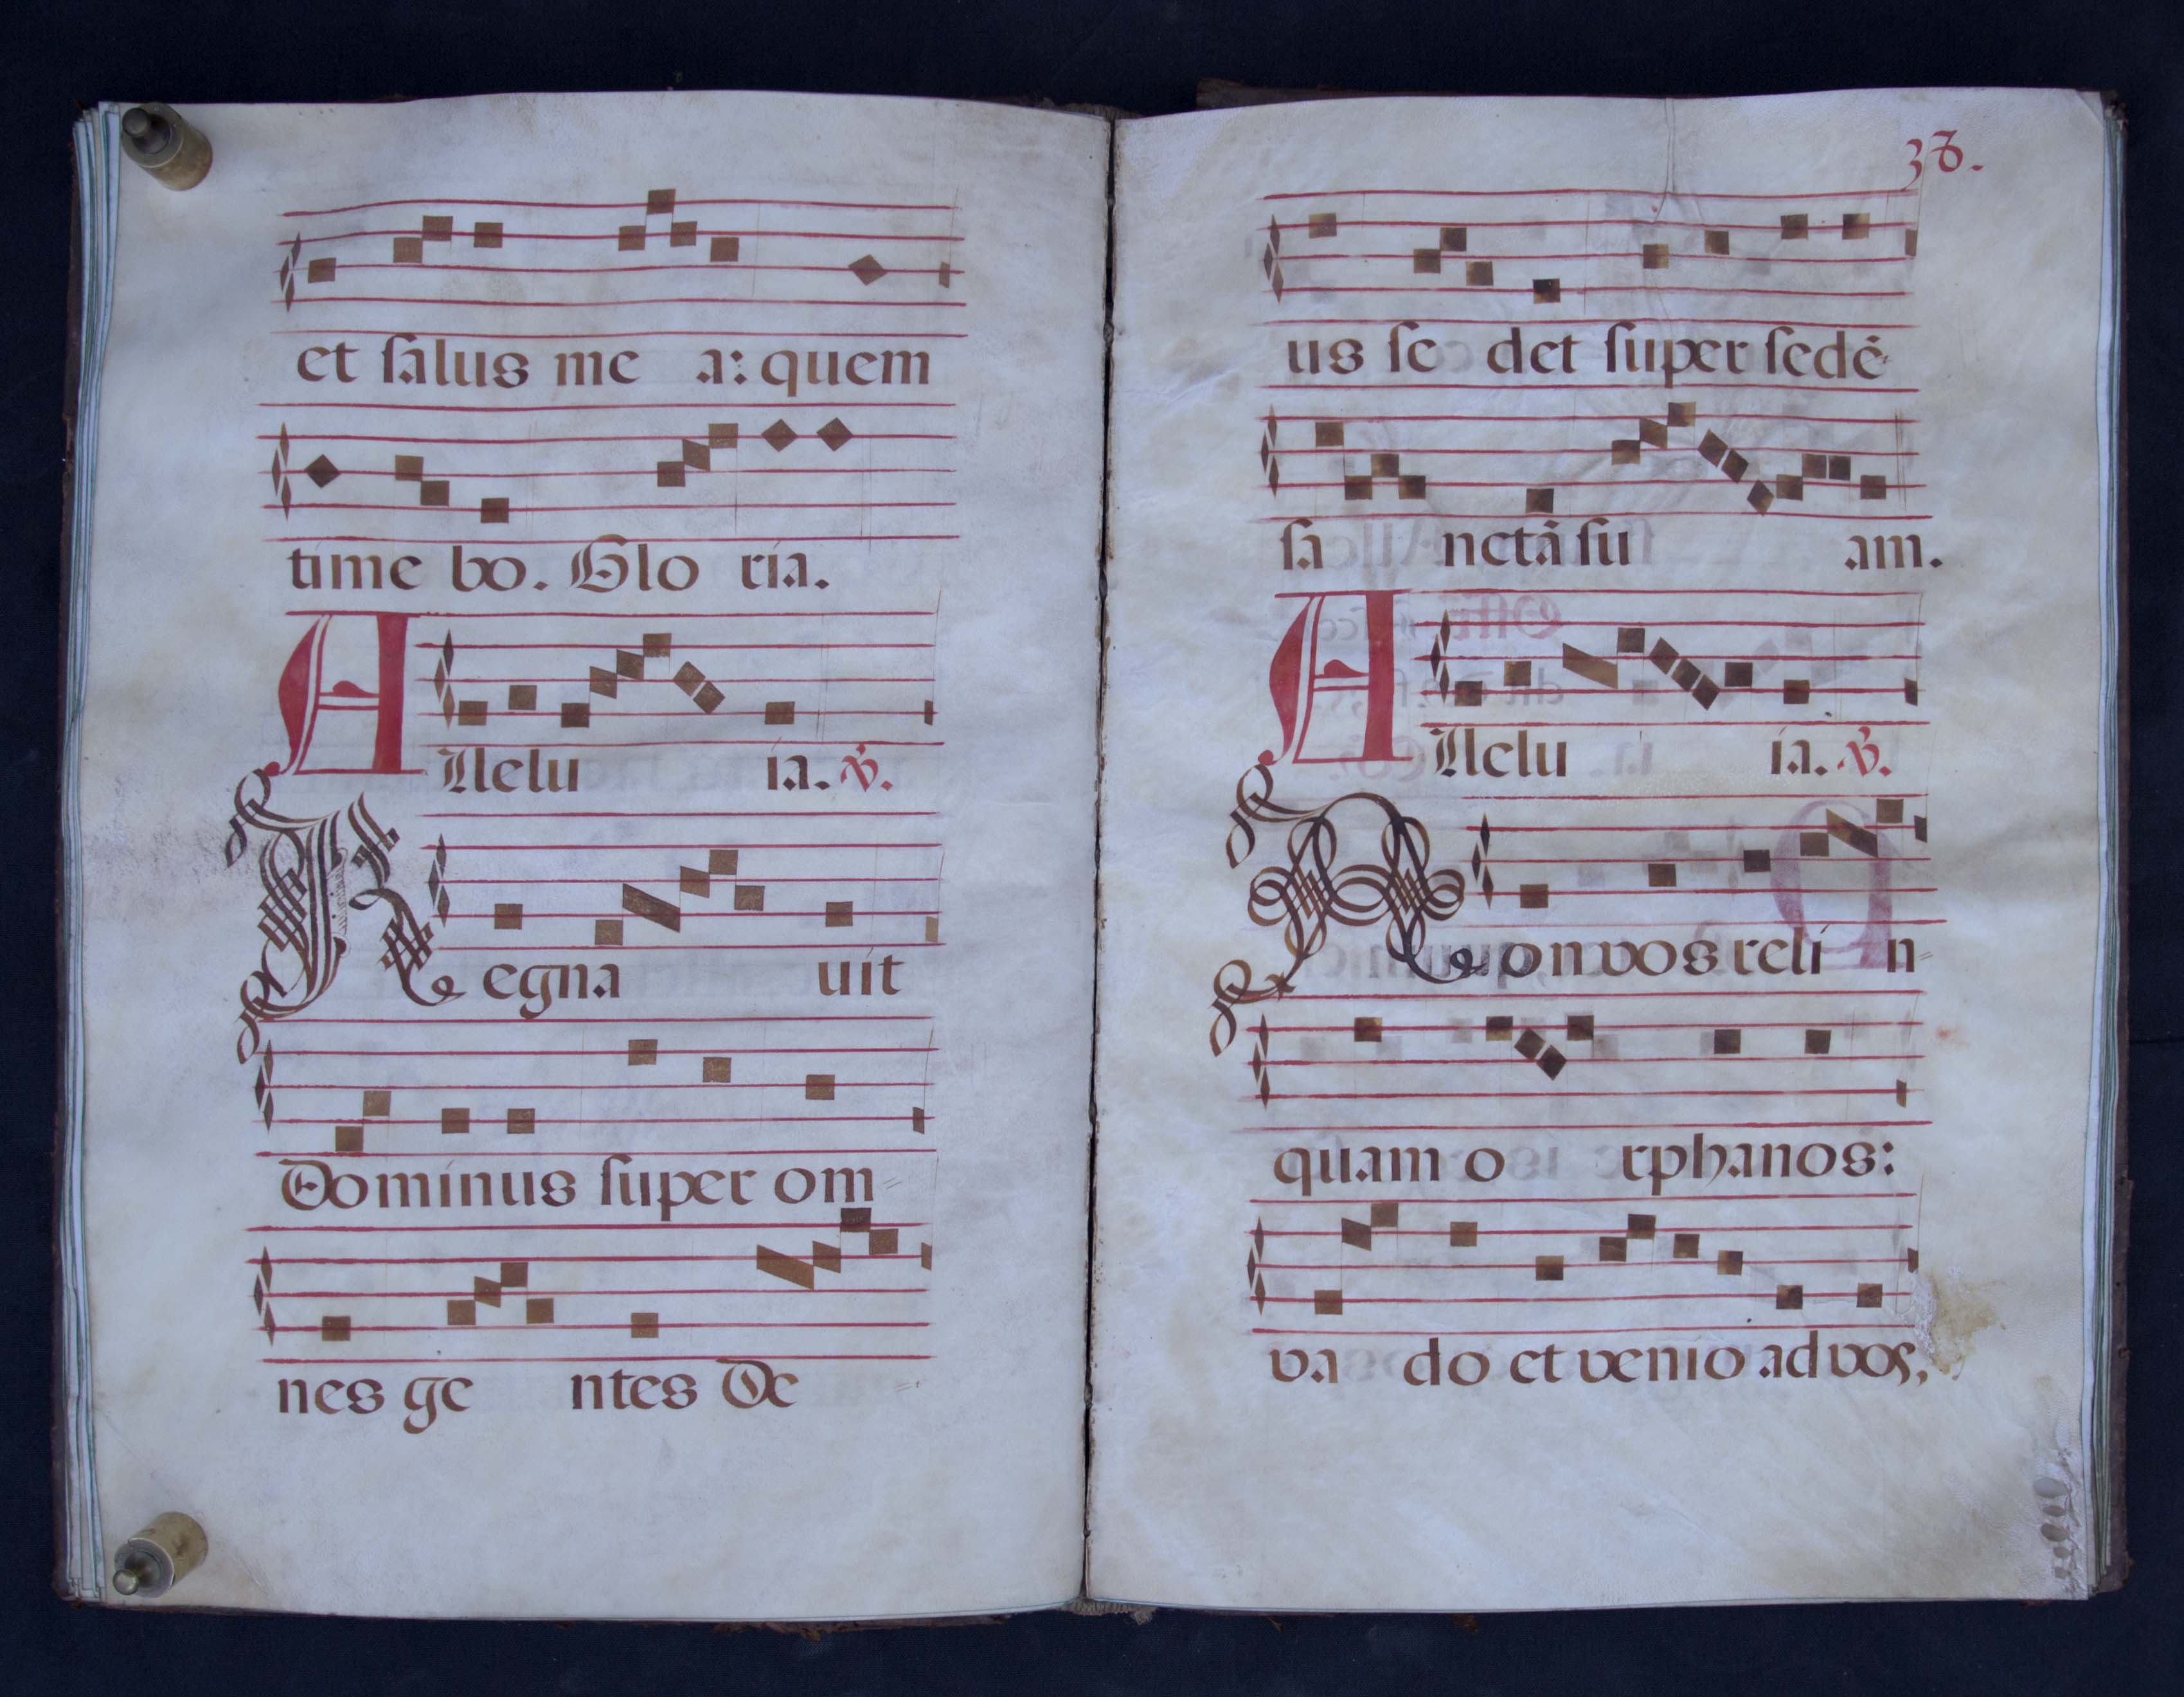 et ſalus me a: quem
time bo. Glo ria.
Allelu ia. ℣.
Regna uit
Dominus ſuper om
nes ge ntes De
38.
us ſe det ſuper ſedē
ſa nctā ſu am.
Allelu ia. ℣.
Non vos reli n
quam o rphanos:
va do et venio ad vos,